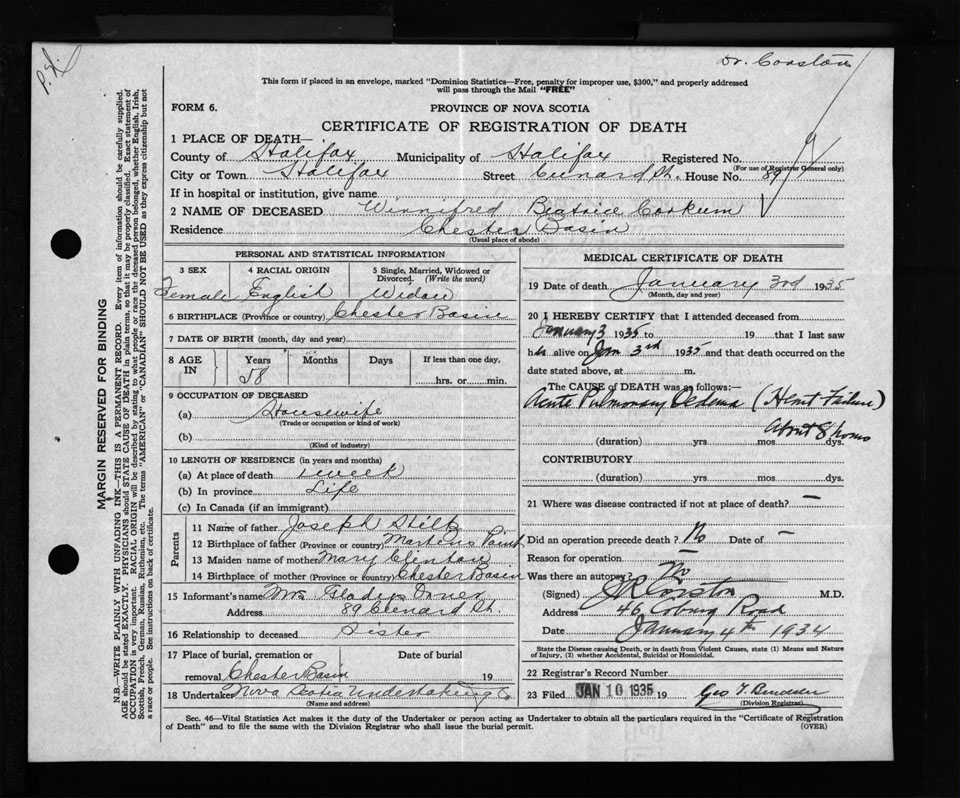 Dr. Corston
This form if placed in an envelope, marked "Dominion Statistics—Free, penalty for improper use, $300," and properly addressed
will pass through the Mail "FREE"
FORM 6.
PROVINCE OF NOVA SCOTIA
CERTIFICATE OF REGISTRATION OF DEATH
1 PLACE OF DEATH—
County of Halifax Municipality of Halifax Registered No.
(For use of Registrar General only)
City or Town Halifax Street Cunard St. House No. 89
If in hospital or institution, give name
2 NAME OF DECEASED Winnifred Beatrice Corkum
Residence Chester Basin
(Usual place of abode)
PERSONAL AND STATISTICAL INFORMATION
3 SEX 4 RACIAL ORIGIN 5 Single, Married, Widowed or
Divorced. (Write the word)
Female English Widow
6 BIRTHPLACE (Province or country) Chester Basin
7 DATE OF BIRTH (month, day and year)
8 AGE IN Years Months Days If less than one day,
58 hrs. or min.
9 OCCUPATION OF DECEASED
(a) Housewife
(Trade or occupation or kind of work)
(b)
(Kind of industry)
10 LENGTH OF RESIDENCE (in years and months)
(a) At place of death 1 week
(b) In province Life
(c) In Canada (if an immigrant)
Parents
11 Name of father Joseph
12 Birthplace of father (Province or country) Martins Point
13 Maiden name of mother Mary
14 Birthplace of mother (Province or country) Chester Basin
15 Informant's name Mrs Gladys
Address 89 Cunard St.
16 Relationship to deceased Sister
17 Place of burial, cremation or Date of burial
removal Chester Basin 19
18 Undertaker Nova Scotia Undertaking Co
(Name and address)
MEDICAL CERTIFICATE OF DEATH
19 Date of death January 3rd 1935
(Month, day and year)
20 I HEREBY CERTIFY that I attended deceased from
January 3 1935 to 19 that I last saw
her alive on Jan 3rd 1935 and that death occurred on the
date stated above, at m.
The CAUSE OF DEATH was as follows:—
Acute Pulmonary Oedema (Heart Failure)
About 8 hours
(duration) yrs. mos. dys.
CONTRIBUTORY
(duration) yrs. mos. dys.
21 Where was disease contracted if not at place of death? —
Did an operation precede death? No Date of —
Reason for operation —
Was there an autopsy? No
(Signed) J R Corston M.D.
Address 46 Coburg Road
Date January 4th 1934
State the Disease causing Death, or in death from Violent Causes, state (1) Means and Nature
of Injury, (2) whether Accidental, Suicidal or Homicidal.
22 Registrar's Record Number
23 Filed JAN 10 1935 19 Geo T
(Division Registrar)
Sec. 46—Vital Statistics Act makes it the duty of the Undertaker or person acting as Undertaker to obtain all the particulars required in the "Certificate of Registration
of Death" and to file the same with the Division Registrar who shall issue the burial permit.
(OVER)
MARGIN RESERVED FOR BINDING
N.B.—WRITE PLAINLY WITH UNFADING INK—THIS IS A PERMANENT RECORD. Every item of information should be carefully supplied.
AGE should be stated EXACTLY. PHYSICIANS should STATE CAUSE OF DEATH in plain terms, so that it may be properly classified. Exact statement of
OCCUPATION is very important. RACIAL ORIGIN will be described by stating to what people or race the deceased person belonged, whether English, Irish,
Scottish, French, German, Russian, Ruthenian, etc. The terms "AMERICAN" or "CANADIAN" SHOULD NOT BE USED as they express citizenship but not
a race or people. See instructions on back of certificate.